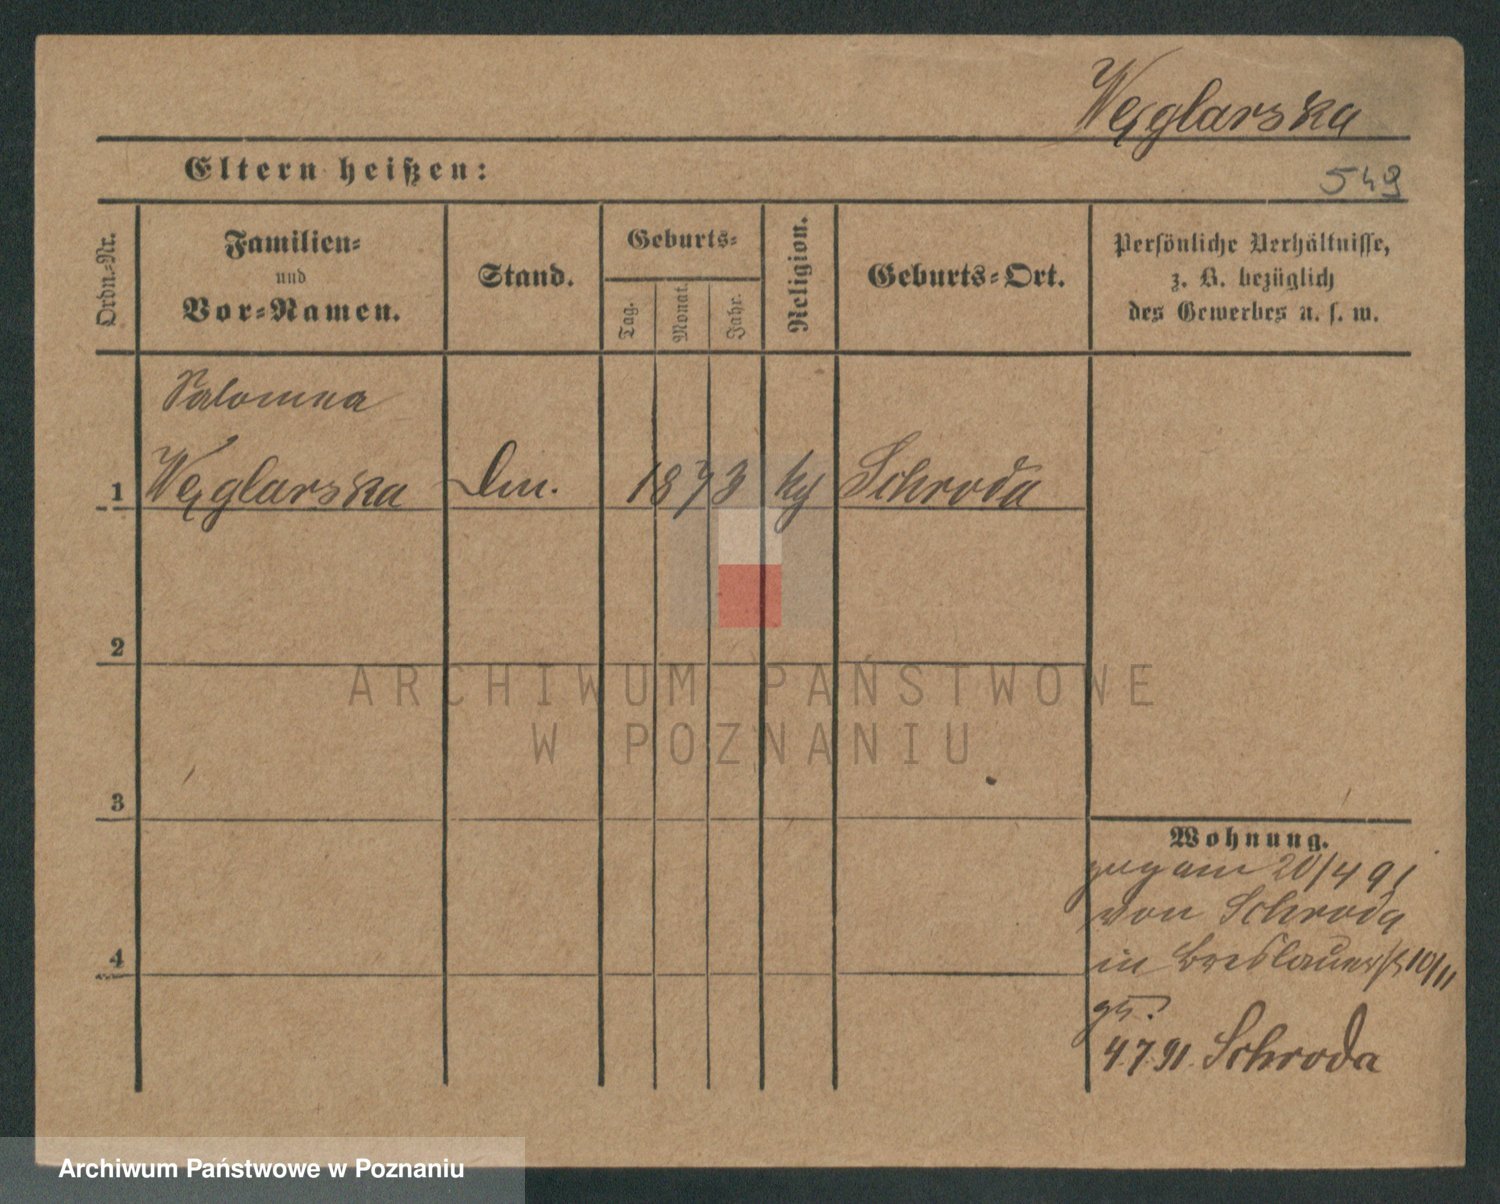 Węglarska
Eltern heißen:
549
Ordn.-Nr.
Familien-
und
Vor-Namen.
Stand.
Geburts-
Tag.
Monat.
Jahr.
Religion.
Geburts-Ort.
Persönliche Verhältnisse,
z. B. bezüglich
des Gewerbes u. s. w.
Salomea
1 Węglarska Dm. 1873 kɟ Schroda
2
ARCHIWUM PAŃSTWOWE
W POZNANIU
3
Wohnung.
20/4 91
von Schroda
in Breslauerstr 10/11
4
4.7.91. Schroda
Archiwum Państwowe w Poznaniu